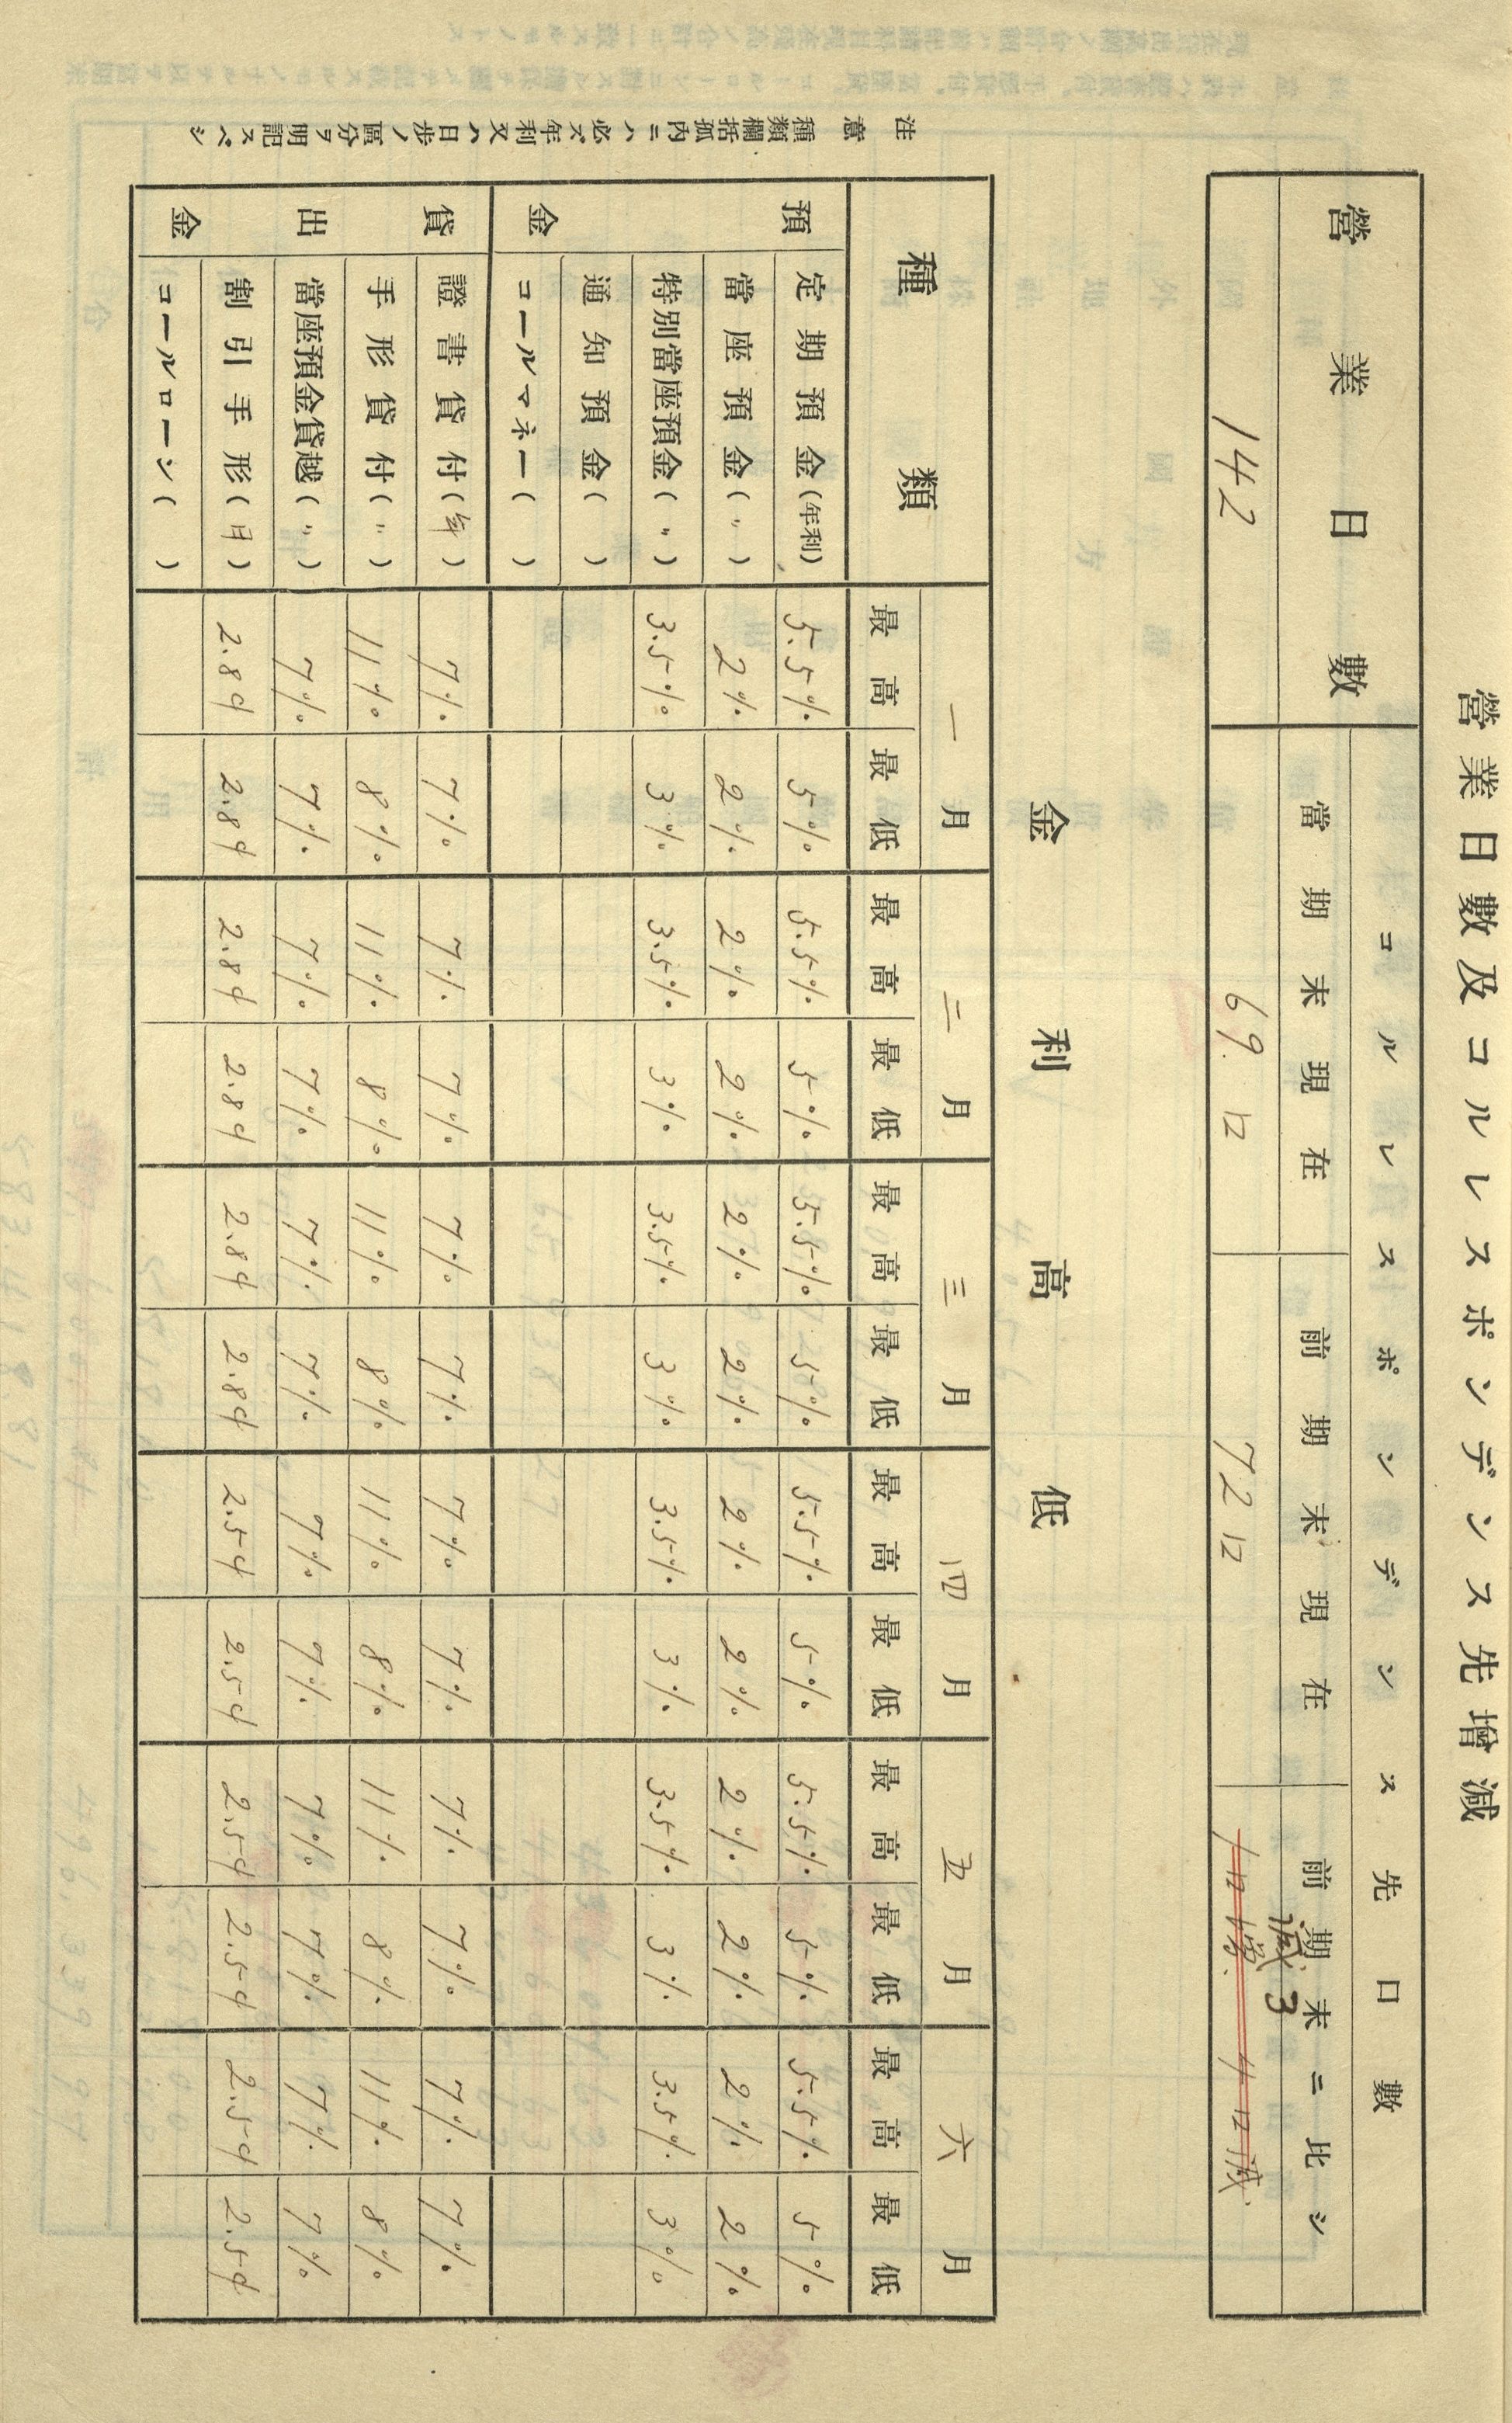 營業日數及コルレスポンデンス先增減
營業日數 コルレスポンデンス先口數
當期末現在 前期末現在 前期末ニ比シ
減 3
142 69口 72口 1口增 4口減
金利高低
種類 一月 二月 三月 四月 五月 六月
最高 最低 最高 最低 最高 最低 最高 最低 最高 最低 最高 最低
預金
定期預金(年利) 5.5% 5% 5.5% 5% 5.5% 5% 5.5% 5% 5.5% 5% 5.5% 5%
當座預金(〃) 2% 2% 2% 2% 2% 2% 2% 2% 2% 2% 2% 2%
特別當座預金(〃) 3.5% 3% 3.5% 3% 3.5% 3% 3.5% 3% 3.5% 3% 3.5% 3%
通知預金( )
コールマネー( )
貸出金
證書貸付(年) 7% 7% 7% 7% 7% 7% 7% 7% 7% 7% 7% 7%
手形貸付(〃) 11% 8% 11% 8% 11% 8% 11% 8% 11% 8% 11% 8%
當座預金貸越(〃) 7% 7% 7% 7% 7% 7% 7% 7% 7% 7% 7% 7%
割引手形(日) 2.84 2.84 2.84 2.84 2.84 2.84 2.54 2.54 2.54 2.54 2.54 2.54
コールローン( )
注意 種類欄括孤內ニハ必ズ年利又ハ日步ノ區分ヲ明記スベシ